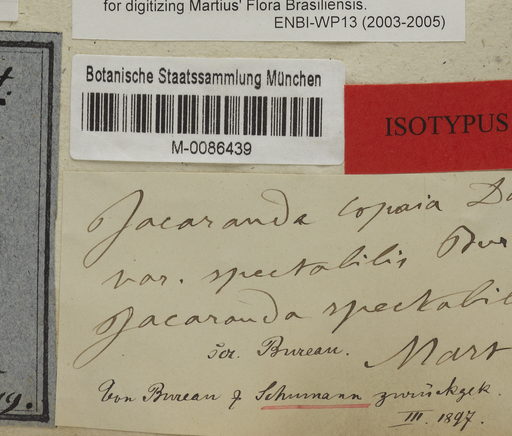 for digitizing Martius' Flora Brasiliensis.
ENBI-WP13 (2003-2005)
Botanische Staatssammlung München
M-0086439
ISOTYPUS
Jacaranda copaia D
var. spectabilis Bur
Jacaranda spectabil
scr. Bureau. Mart
Von Bureau & Schumann zurückgek.
III. 1897.